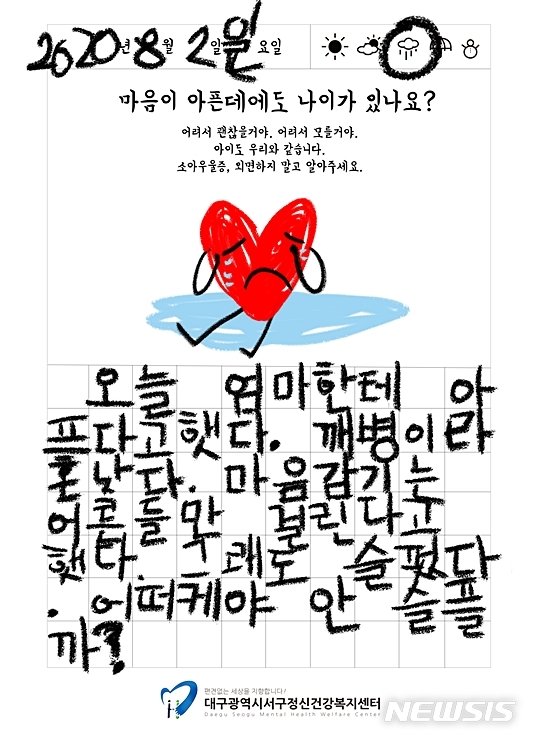 2020년 8월 2일일 요일
마음이 아픈데에도 나이가 있나요?
어려서 괜찮을거야. 어려서 모를거야.
아이도 우리와 같습니다.
소아우울증, 외면하지 말고 알아주세요.
오늘 엄마한테 아
프다고햇다. 깨병이라
혼낫다. 마음감기는
어른들만 불린다고
햇다. 괘도 슬펐다
. 어떠케야 안 슬플
까?
편견없는 세상을 지향합니다!
대구광역시서구정신건강복지센터
Daegu Seogu Mental Health Welfare Center
NEWSIS